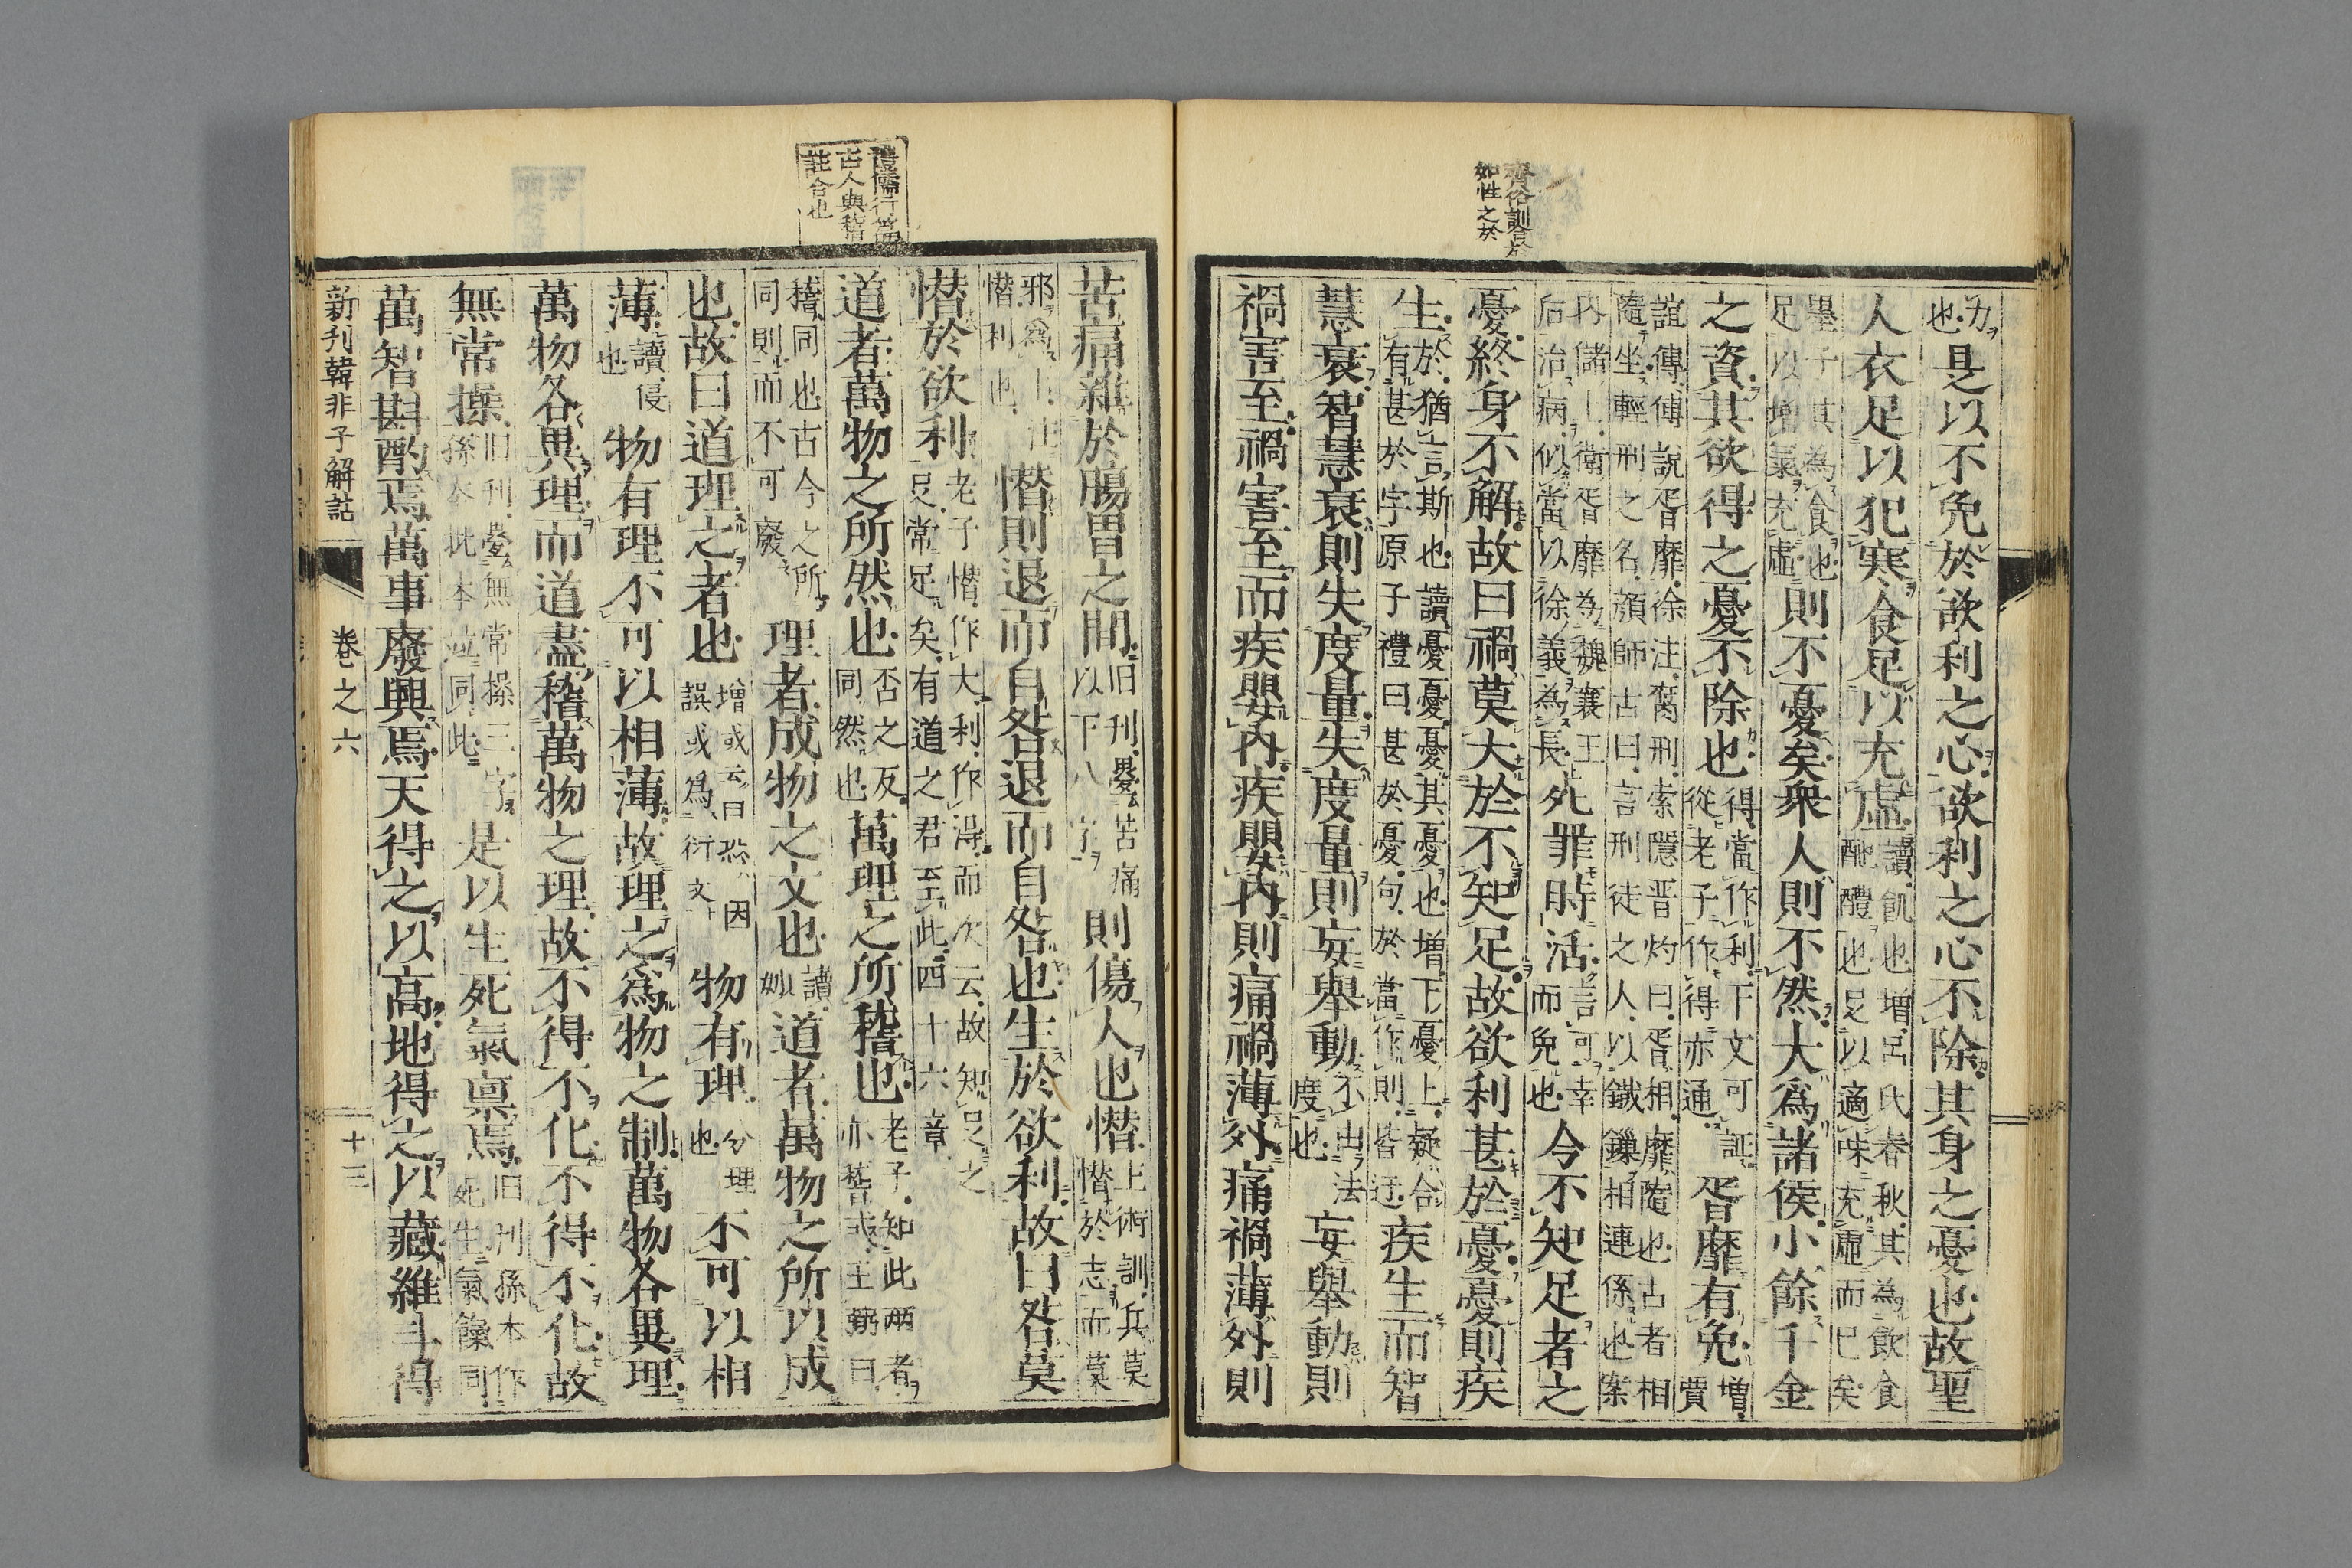 齊俗訓合於
如性之於
力
也是以不免於欲利之心欲利之心不除其身之憂也故聖
人衣足以犯寒食足以充虛讀飢也增呂氏春秋其為飲食
酏醴也足以適味充虛而已矣
墨子其為食也
足以增氣充虛則不憂矣衆人則不然大為諸侯小餘千金
之資其欲得之憂不除也得當作利下文可証
從老子作得亦通胥靡有免增
賈
誼傳傅說胥靡徐注腐刑索隱晋灼曰胥相靡隨也古者相
隨坐輕刑之名顏師古曰言刑徒之人以鐵鏁相連係也案
内儲上衛胥靡為魏襄王
后治病似當以徐義為長死罪時活言可幸
而免也今不知足者之
憂終身不解故曰禍莫大於不知足故欲利甚於憂憂則疾
生於猶言斯也讀憂憂憂其憂也增下憂上疑合
有甚於字原子禮曰甚於憂句於當作則皆迂疾生而智
慧衰智慧衰則失度量失度量則妄舉動不由法
度也妄舉動則
禍害至禍害至而疾嬰内疾嬰内則痛禍薄外痛禍薄外則
禮儒行篇
古人與稽
註合也
苦痛雜於膓胃之間旧刋疊苦痛
以下八字則傷人也憯上術訓兵莫
憯於志而莫
邪為下注
憯利也憯則退而自咎退而自咎也生於欲利故曰咎莫
憯於欲利老子憯作大利作得而次云故知足之
足常足矣有道之君至此四十六章
道者萬物之所然也否之反
同然也萬理之所稽也老子知此兩者
亦楷式王弼曰
稽同也古今之所
同則而不可廢理者成物之文也讀
妙道者萬物之所以成
也故曰道理之者也增或云曰恐因
誤或為衍文物有理分理
也不可以相
薄讀侵
也物有理不可以相薄故理之為物之制萬物各異理
萬物各異理而道盡稽萬物之理故不得不化不得不化故
無常操旧刋疊無常操三字
孫本㧗本竝同此是以生死氣稟焉旧刋孫本作
死生氣饟同
萬智斟酌焉萬事廢興焉天得之以高地得之以藏維斗得
新刋韓非子解詁
卷之六
十三